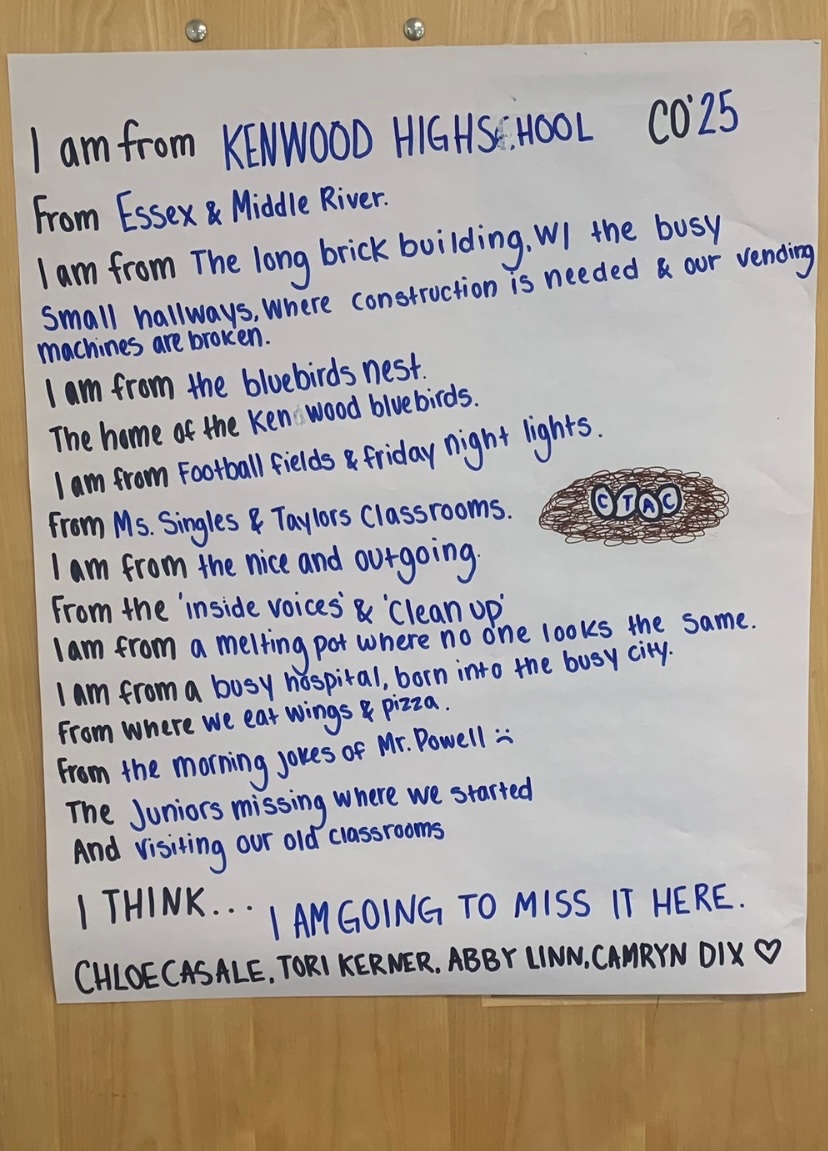 I am from KENWOOD HIGHSCHOOL CO'25
From Essex & Middle River.
I am from The long brick building, W/ the busy
Small hallways, Where construction is needed & our vending
machines are broken.
I am from the bluebirds nest.
The home of the Kenwood bluebirds.
I am from Football fields & friday night lights.
From Ms. Singles & Taylors Classrooms.
CTAC
I am from the nice and outgoing.
From the 'inside voices' & 'clean up'
I am from a melting pot where no one looks the same.
I am from a busy hospital, born into the busy city.
From where we eat wings & pizza.
From the morning jokes of Mr. Powell :(
The Juniors missing where we started
And visiting our old classrooms
I THINK... I AM GOING TO MISS IT HERE.
CHLOE CASALE, TORI KERNER, ABBY LINN, CAMRYN DIX ♡